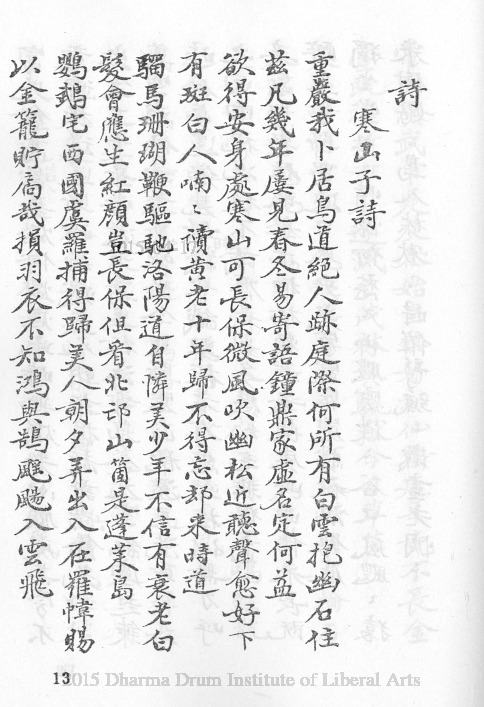 詩
寒山子詩
重巖我卜居鳥道絕人跡庭際何所有白雲抱幽石住
茲凡幾年屢見春冬易寄語鐘鼎家虛名定何益
欲得安身處寒山可長保微風吹幽松近聽聲愈好下
有斑白人喃〻讀黃老十年歸不得忘却來時道
驑馬珊瑚鞭驅馳洛陽道自憐美少年不信有衰老白
髮會應生紅顏豈長保但看北邙山箇是蓬萊島
鸚鵡宅西國虞羅捕得歸美人朝夕弄出入在羅幃賜
以金籠貯扃哉損羽衣不知鴻與鵠颻颺入雲飛
13
2015 Dharma Drum Institute of Liberal Arts